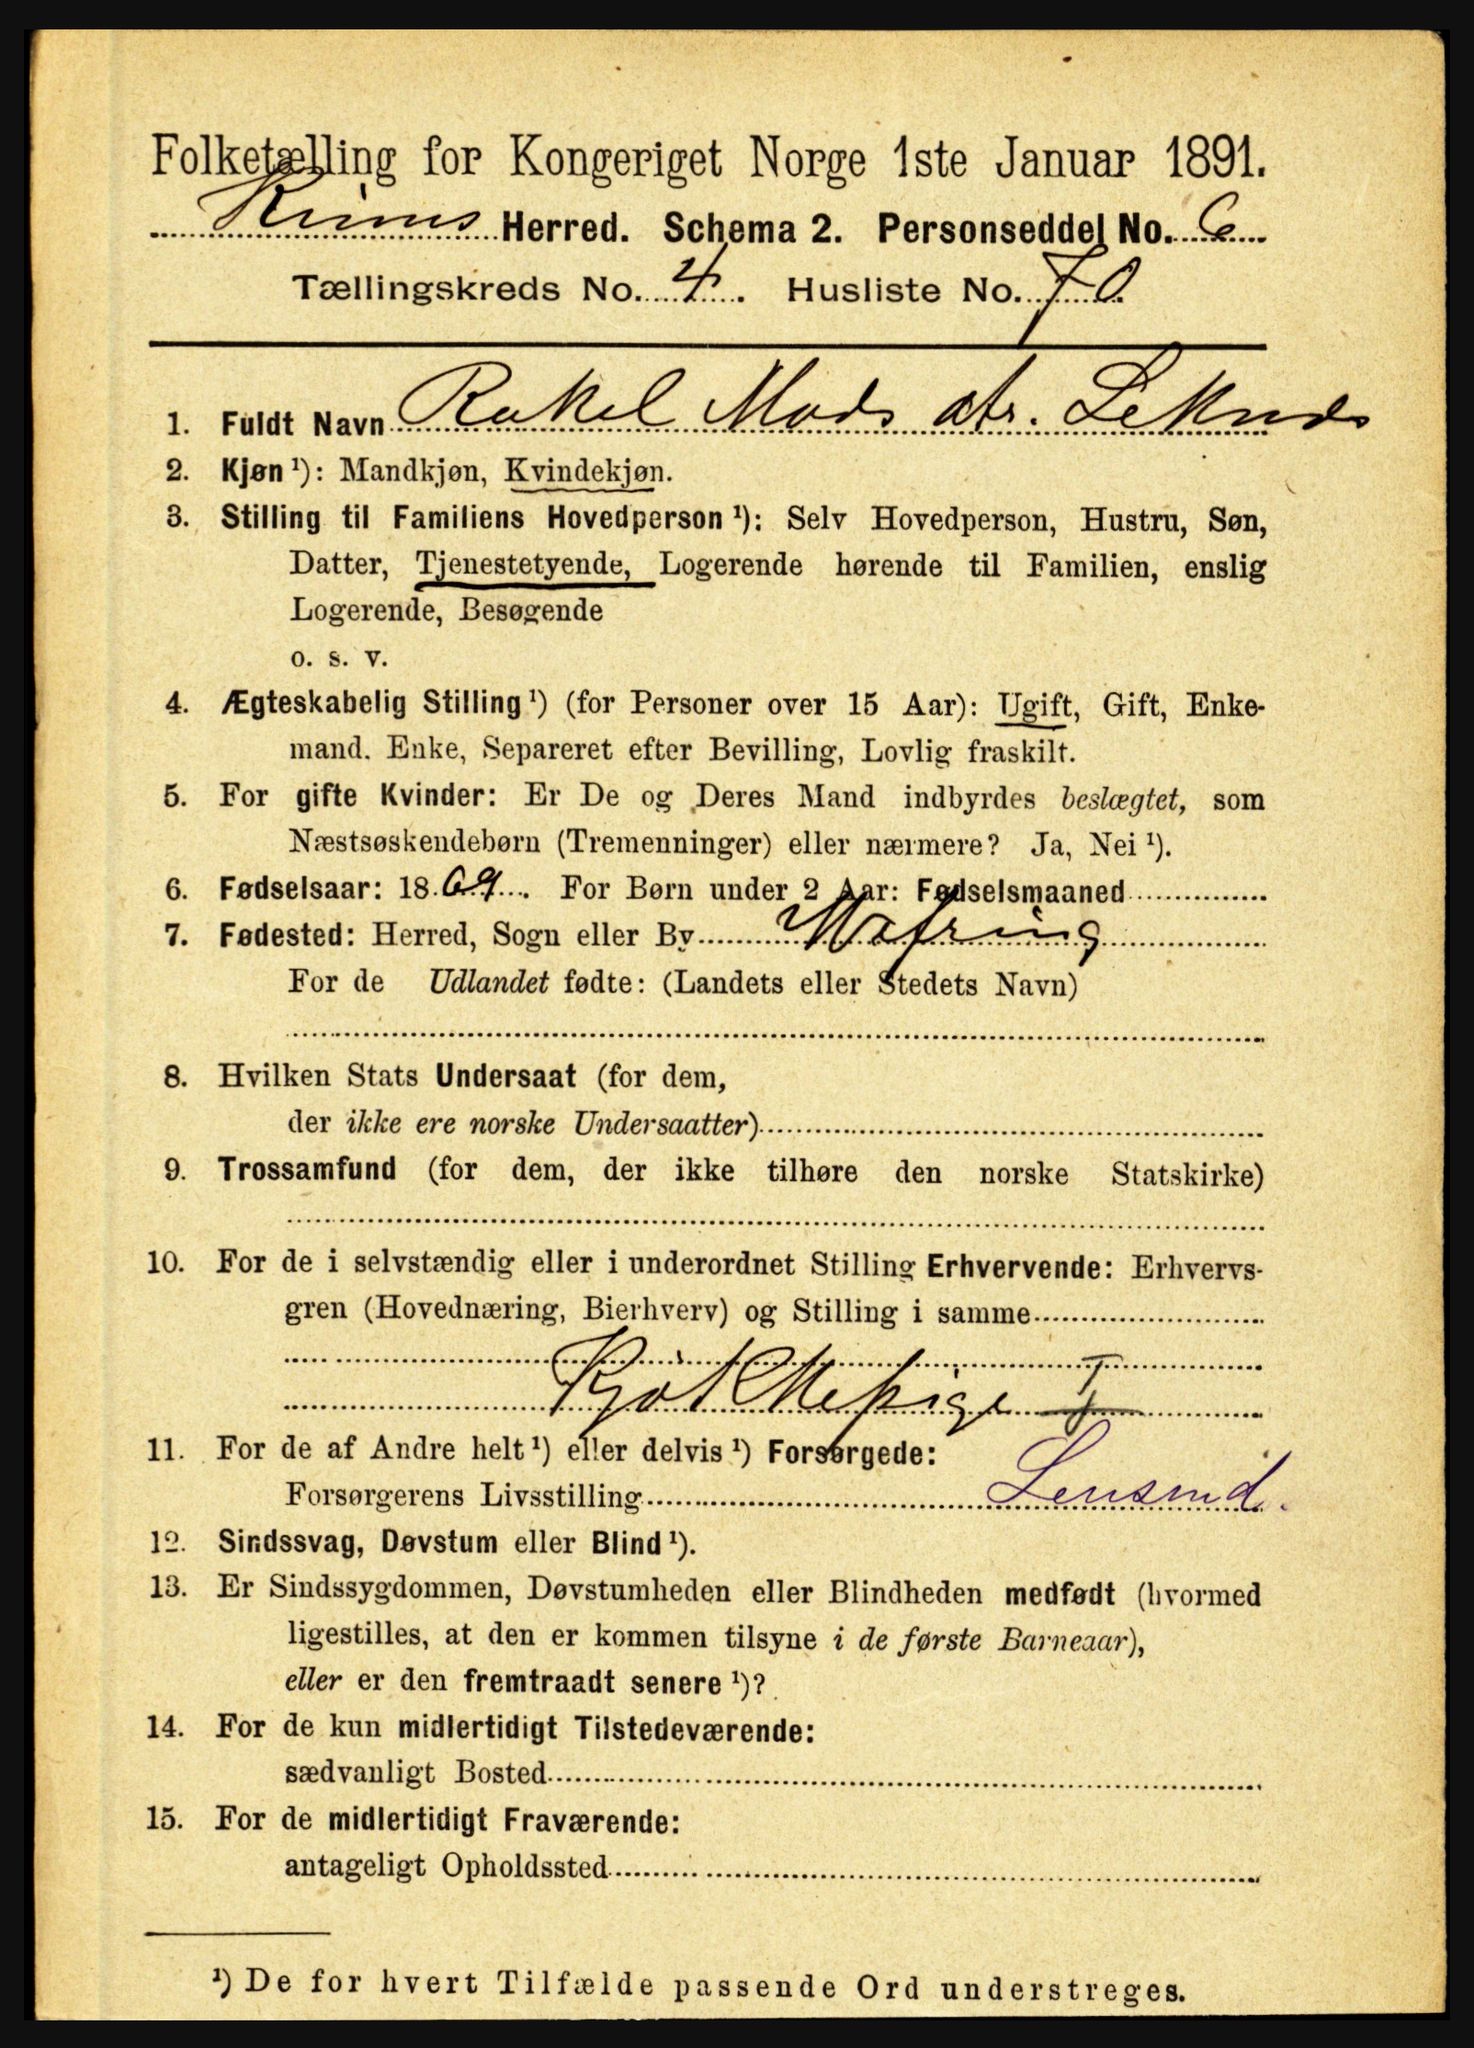 Folketælling for Kongeriget Norge 1ste Januar 1891.
Kinns Herred. Schema 2. Personseddel No. 6
Tællingskreds No. 4. Husliste No. 70
1. Fuldt Navn Rakel Mads dtr. Leknes
2. Kjøn ¹): Mandkjøn, Kvindekjøn.
3. Stilling til Familiens Hovedperson ¹): Selv Hovedperson, Hustru, Søn,
Datter, Tjenestetyende, Logerende hørende til Familien, enslig
Logerende, Besøgende
o. s. v.
4. Ægteskabelig Stilling ¹) (for Personer over 15 Aar): Ugift, Gift, Enke-
mand. Enke, Separeret efter Bevilling, Lovlig fraskilt.
5. For gifte Kvinder: Er De og Deres Mand indbyrdes beslægtet, som
Næstsøskendebørn (Tremenninger) eller nærmere? Ja, Nei ¹).
6. Fødselsaar: 1869. For Børn under 2 Aar: Fødselsmaaned
7. Fødested: Herred, Sogn eller By
For de Udlandet fødte: (Landets eller Stedets Navn)
8. Hvilken Stats Undersaat (for dem,
der ikke ere norske Undersaatter)
9. Trossamfund (for dem, der ikke tilhøre den norske Statskirke)
10. For de i selvstændig eller i underordnet Stilling Erhvervende: Erhvervs-
gren (Hovednæring, Bierhverv) og Stilling i samme
11. For de af Andre helt ¹) eller delvis ¹) Forsørgede:
Forsørgerens Livsstilling Lensmd.
12. Sindssvag, Døvstum eller Blind ¹).
13. Er Sindssygdommen, Døvstumheden eller Blindheden medfødt (hvormed
ligestilles, at den er kommen tilsyne i de første Barneaar),
eller er den fremtraadt senere ¹)?
14. For de kun midlertidigt Tilstedeværende:
sædvanligt Bosted
15. For de midlertidigt Fraværende:
antageligt Opholdssted
¹) De for hvert Tilfælde passende Ord understreges.